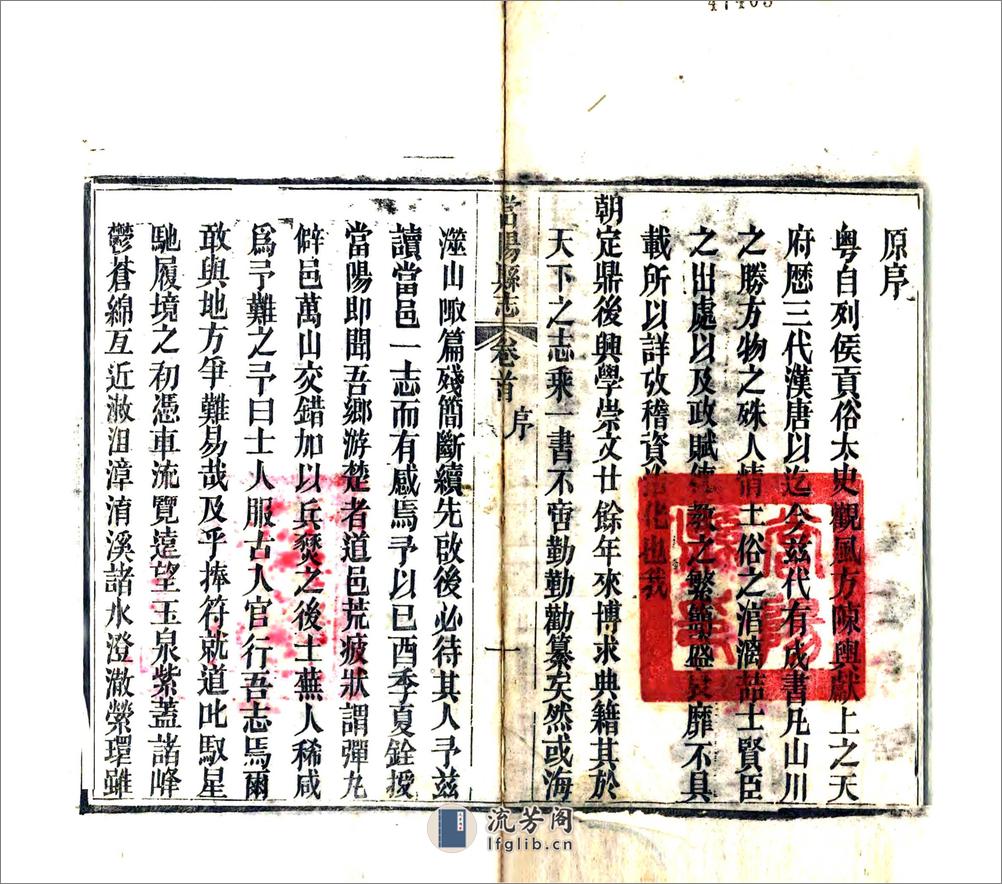 原序
粵自列侯貢俗太史觀風方陳輿獻上之天
府歷三代漢唐以迄今茲代有成書凡山川
之勝方物之殊人情土俗之淯漓喆士賢臣
之出處以及政賦 教之繁簡盛衰靡不具
載所以詳攷稽資 化也我
朝定鼎後興學崇文廿餘年來博求典籍其於
天下之志乘一書不啻勤勤勸纂矣然或海
當陽縣志
卷首
序
一
澨山陬篇殘簡斷續先啟後必待其人予茲
讀當邑一志而有感焉予以己酉季夏銓授
當陽即聞吾鄉游楚者道邑荒疲狀謂彈丸
僻邑萬山交錯加以兵燹之後土蕪人稀咸
爲予難之予曰士人服古入官行吾志焉爾
敢與地方爭難易哉及乎捧符就道叱馭星
馳履境之初憑車流覽遠望玉泉紫蓋諸峰
鬱蒼綿亙近溆沮漳淯溪諸水澄澈縈環雖
流芳阁
lfglib.cn